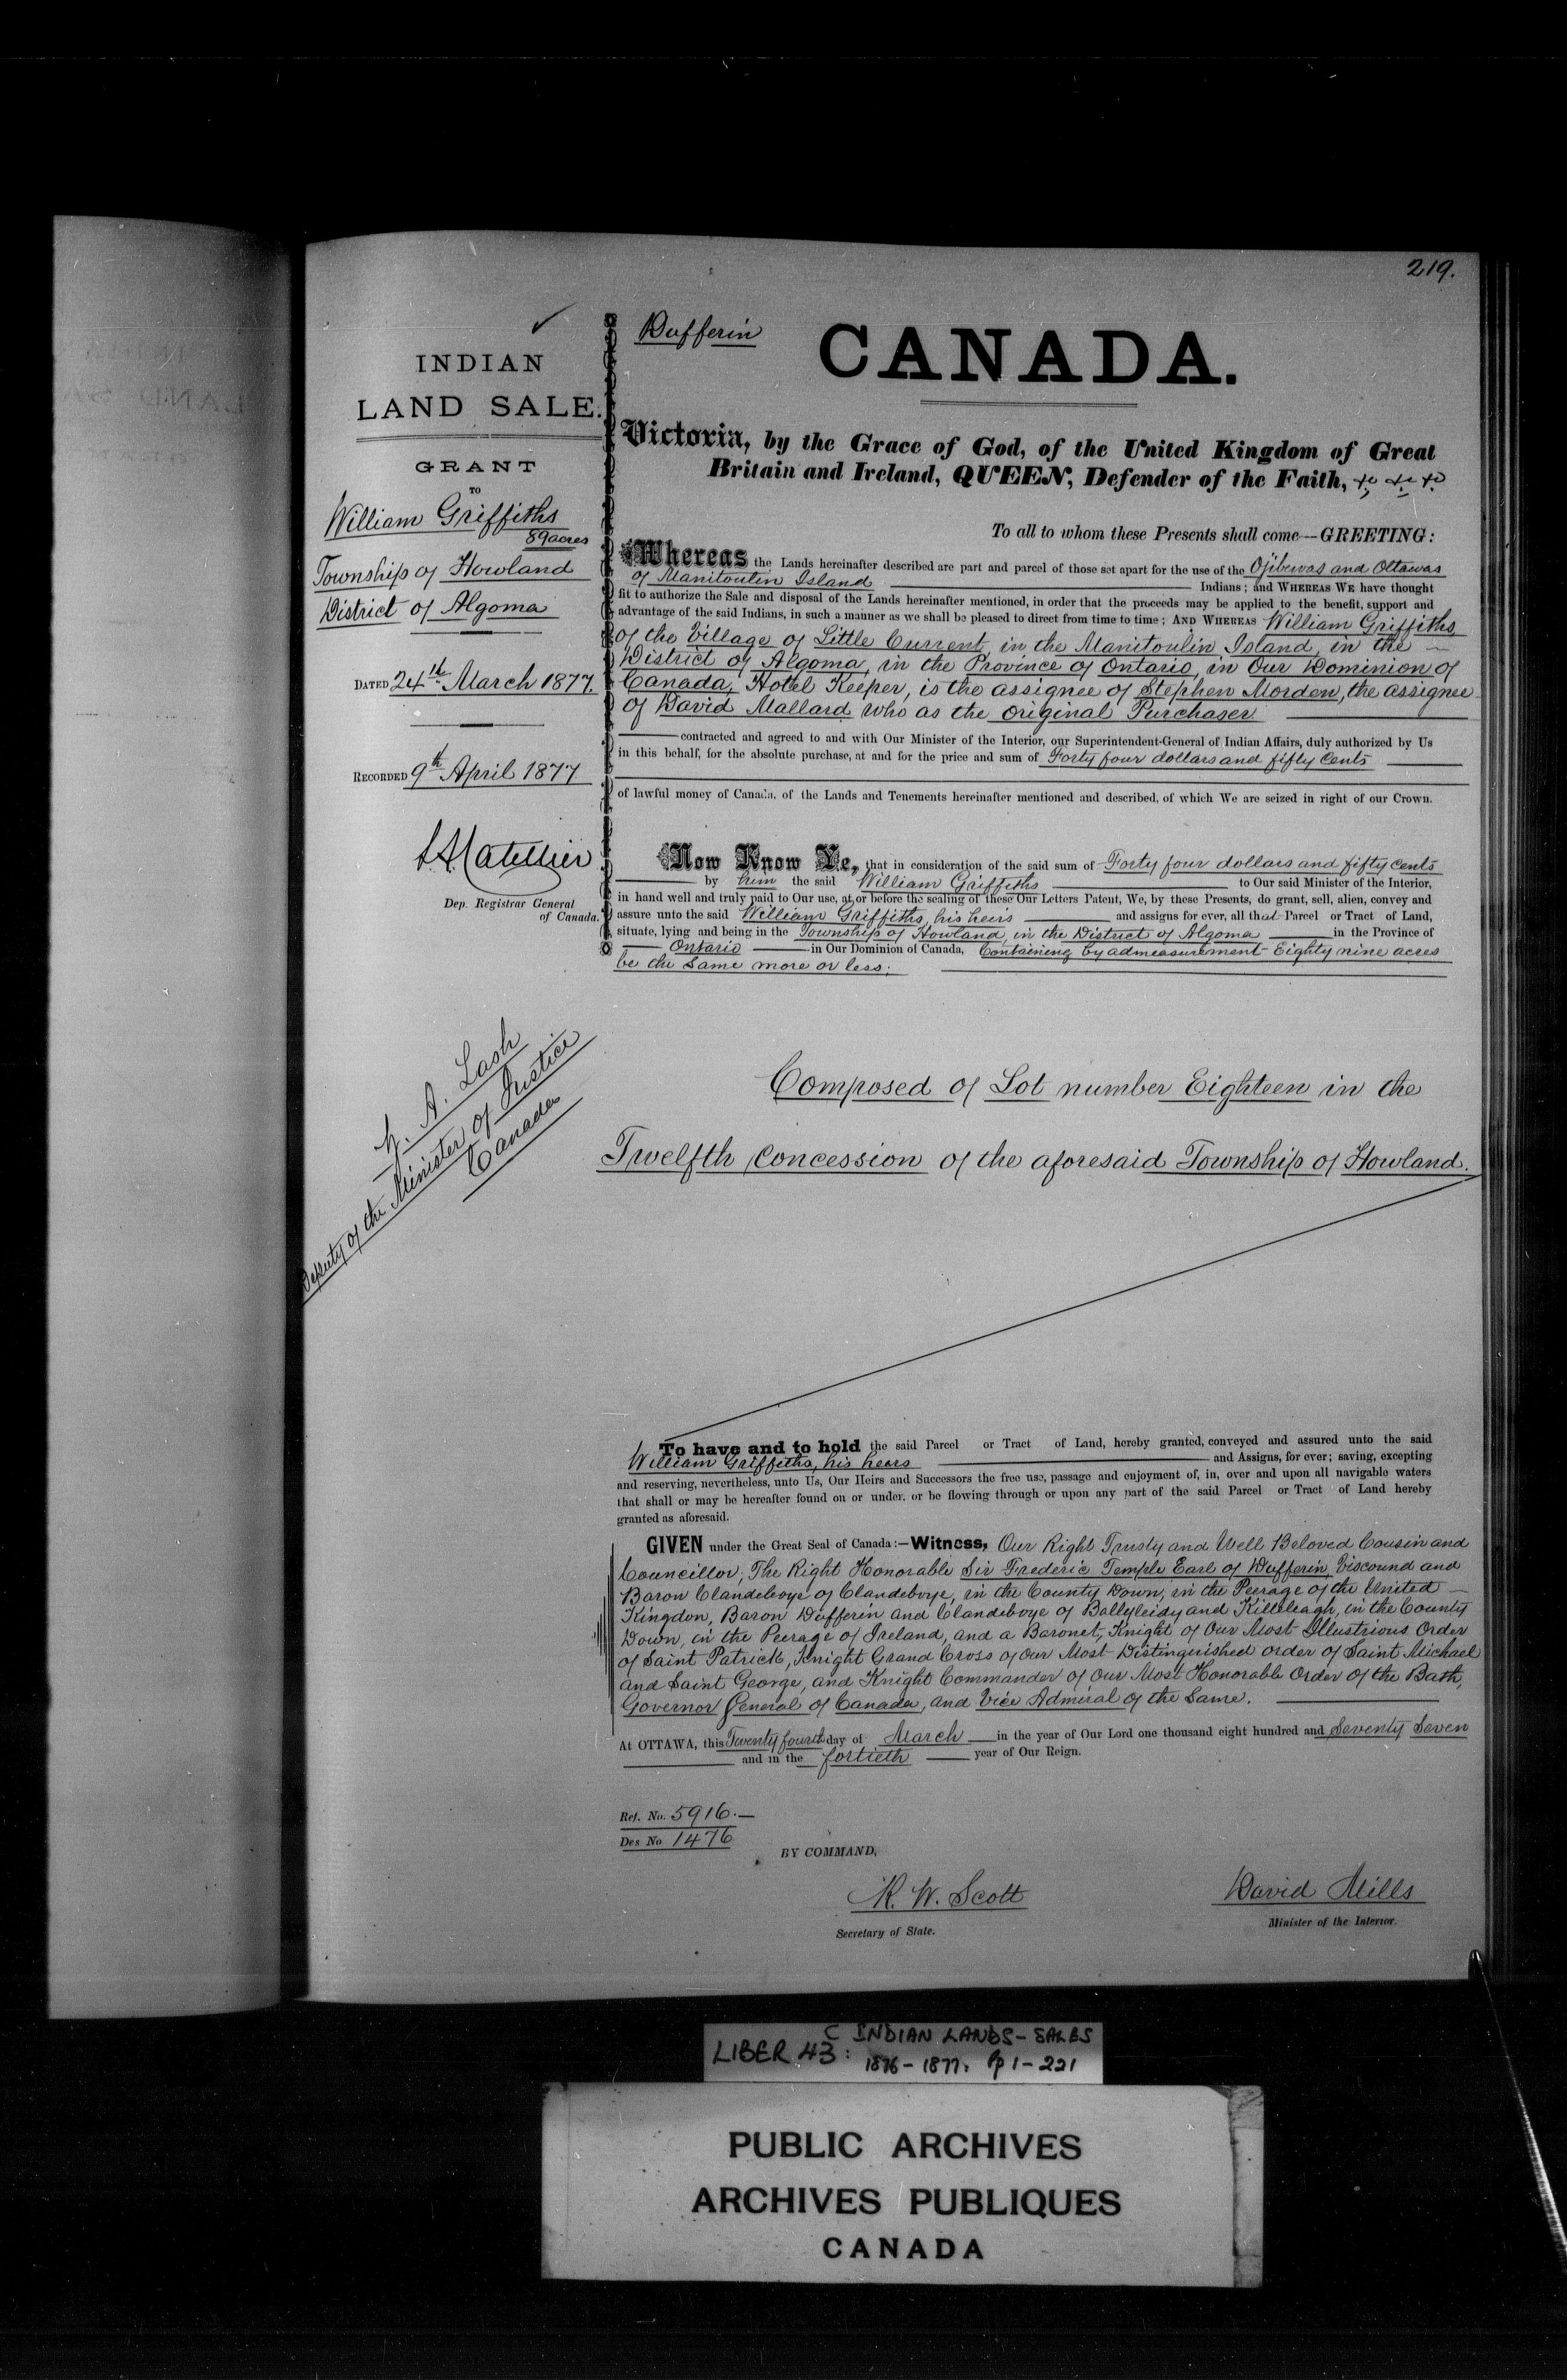 219.
INDIAN
LAND SALE.
GRANT
TO
William Griffiths
89 acres
Township of Howland
District of Algoma
DATED 24th March 1877.
RECORDED 9th April 1877
Dep. Registrar General
of Canada.
Z. A. Lash
Deputy of the Minister of Justice
Canada
Dufferin
CANADA.
Victoria, by the Grace of God, of the United Kingdom of Great
Britain and Ireland, QUEEN, Defender of the Faith, &c, &c &c.
To all to whom these Presents shall come—GREETING:
Whereas the Lands hereinafter described are part and parcel of those set apart for the use of the Ojibewas and Ottawas
of Manitoulin Island Indians; and WHEREAS WE have thought
fit to authorize the Sale and disposal of the Lands hereinafter mentioned, in order that the proceeds may be applied to the benefit, support and
advantage of the said Indians, in such a manner as we shall be pleased to direct from time to time; AND WHEREAS William Griffiths
of the Village of Little Current, in the Manitoulin Island, in the
District of Algoma, in the Province of Ontario, in Our Dominion of
Canada, Hotel Keeper, is the assignee of Stephen Morden, the assignee
of David Mallard who as the original Purchaser
contracted and agreed to and with Our Minister of the Interior, our Superintendent-General of Indian Affairs, duly authorized by Us
in this behalf, for the absolute purchase, at and for the price and sum of Forty four dollars and fifty Cents
of lawful money of Canada, of the Lands and Tenements hereinafter mentioned and described, of which We are seized in right of our Crown.
Now Know Ye, that in consideration of the said sum of Forty four dollars and fifty cents
by him the said William Griffiths to Our said Minister of the Interior,
in hand well and truly paid to Our use, at or before the sealing of these Our Letters Patent, We, by these Presents, do grant, sell, alien, convey and
assure unto the said William Griffiths, his heirs and assigns for ever, all that Parcel or Tract of Land,
situate, lying and being in the Township of Howland, in the District of Algoma in the Province of
Ontario in Our Dominion of Canada, Containing by admeasurement Eighty nine acres
be the Same more or less;
Composed of Lot number Eighteen in the
Twelfth Concession of the aforesaid Township of Howland.
To have and to hold the said Parcel or Tract of Land, hereby granted, conveyed and assured unto the said
William Griffiths, his heirs and Assigns, for ever; saving, excepting
and reserving, nevertheless, unto Us, Our Heirs and Successors the free use, passage and enjoyment of, in, over and upon all navigable waters
that shall or may be hereafter found on or under, or be flowing through or upon any part of the said Parcel or Tract of Land hereby
granted as aforesaid.
GIVEN under the Great Seal of Canada:—Witness, Our Right Trusty and Well Beloved Cousin and
Councillor, The Right Honorable Sir Frederic Temple Earl of Dufferin, Viscound and
Baron Clandeboye of Clandeboye, in the County Down, in the Peerage of the United
Kingdon, Baron Dufferin and Clandeboye of Ballyleidy and Killeleagh, in the County
Down, in the Peerage of Ireland, and a Baronet, Knight of Our Most Illustrious Order
of Saint Patrick, Knight Grand Cross of Our Most Distinguished order of Saint Michael
and Saint George, and Knight Commander of Our Most Honorable Order of the Bath,
Governor General of Canada, and Vice Admiral of the Same.
At OTTAWA, this Twenty fourth day of March in the year of Our Lord one thousand eight hundred and Seventy Seven
and in the fortieth year of Our Reign.
Ref. No. 5916.
Des No 1476
BY COMMAND,
R. W. Scott
Secretary of State.
David Mills
Minister of the Interior.
LIBER 43: C INDIAN LANDS - SALES
1876 - 1877. Pp 1 - 221
PUBLIC ARCHIVES
ARCHIVES PUBLIQUES
CANADA